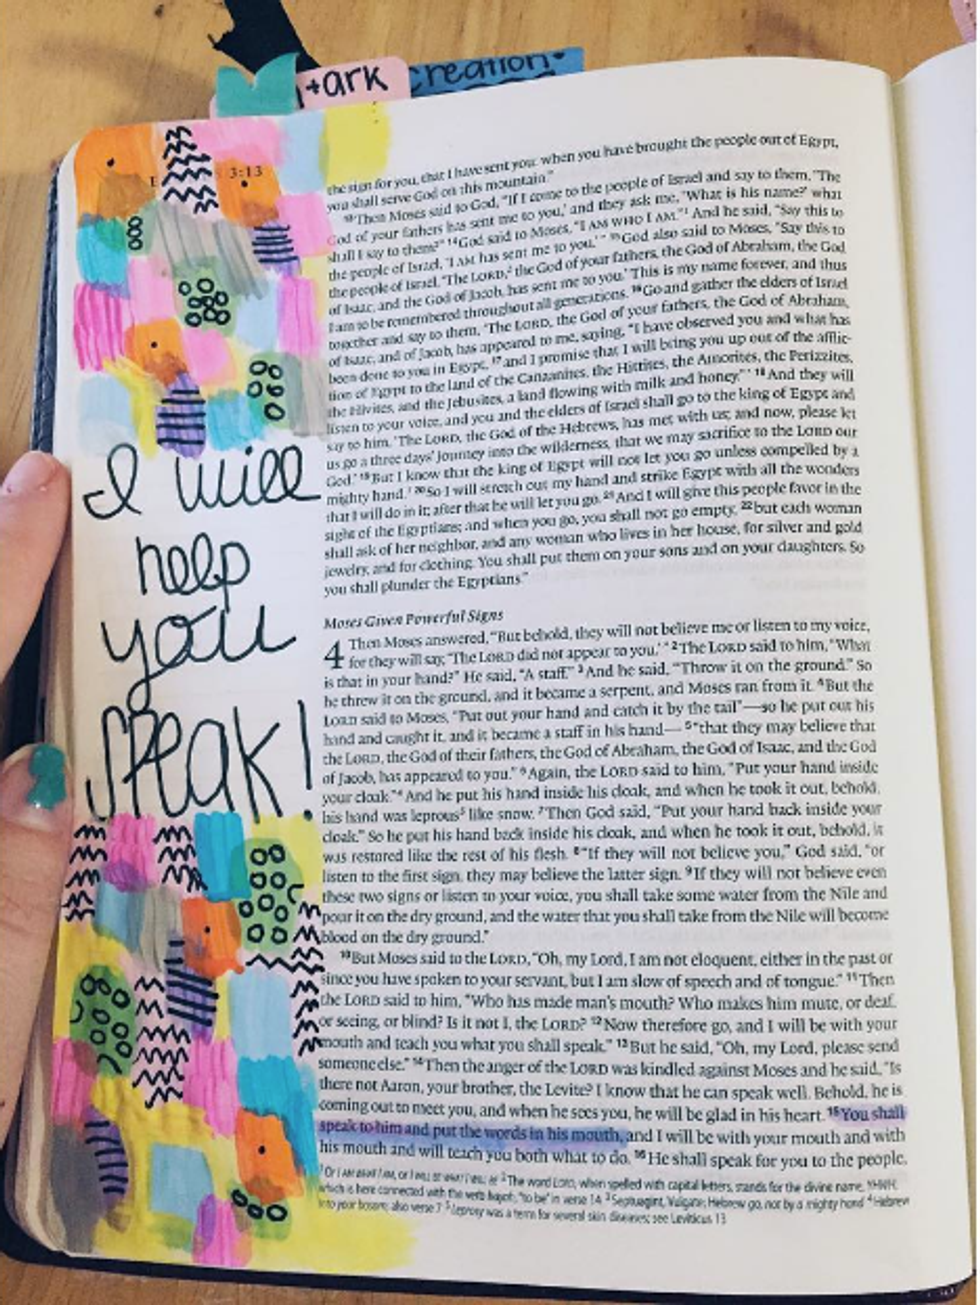 +ark
creation
3:13
I will
help
you
speak!
the sign for you, that I have sent you: when you have brought the people out of Egypt,
you shall serve God on this mountain."
13Then Moses said to God, "If I come to the people of Israel and say to them, 'The
God of your fathers has sent me to you,' and they ask me, 'What is his name?' what
shall I say to them?" 14God said to Moses, "I AM WHO I AM."1 And he said, "Say this to
the people of Israel, 'I AM has sent me to you.'" 15God also said to Moses, "Say this to
the people of Israel, 'The LORD,2 the God of your fathers, the God of Abraham, the God
of Isaac, and the God of Jacob, has sent me to you.' This is my name forever, and thus
I am to be remembered throughout all generations. 16Go and gather the elders of Israel
together and say to them, 'The LORD, the God of your fathers, the God of Abraham,
of Isaac, and of Jacob, has appeared to me, saying, "I have observed you and what has
been done to you in Egypt, 17and I promise that I will bring you up out of the afflic-
tion of Egypt to the land of the Canaanites, the Hittites, the Amorites, the Perizzites,
the Hivites, and the Jebusites, a land flowing with milk and honey."' 18And they will
listen to your voice, and you and the elders of Israel shall go to the king of Egypt and
say to him, 'The LORD, the God of the Hebrews, has met with us; and now, please let
us go a three days' journey into the wilderness, that we may sacrifice to the LORD our
God.' 19But I know that the king of Egypt will not let you go unless compelled by a
mighty hand.3 20So I will stretch out my hand and strike Egypt with all the wonders
that I will do in it; after that he will let you go. 21And I will give this people favor in the
sight of the Egyptians; and when you go, you shall not go empty, 22but each woman
shall ask of her neighbor, and any woman who lives in her house, for silver and gold
jewelry, and for clothing. You shall put them on your sons and on your daughters. So
you shall plunder the Egyptians."
Moses Given Powerful Signs
4 Then Moses answered, "But behold, they will not believe me or listen to my voice,
for they will say, 'The LORD did not appear to you.'" 2The LORD said to him, "What
is that in your hand?" He said, "A staff." 3And he said, "Throw it on the ground." So
he threw it on the ground, and it became a serpent, and Moses ran from it. 4But the
LORD said to Moses, "Put out your hand and catch it by the tail"—so he put out his
hand and caught it, and it became a staff in his hand— 5"that they may believe that
the LORD, the God of their fathers, the God of Abraham, the God of Isaac, and the God
of Jacob, has appeared to you." 6Again, the LORD said to him, "Put your hand inside
your cloak."4 And he put his hand inside his cloak, and when he took it out, behold,
his hand was leprous5 like snow. 7Then God said, "Put your hand back inside your
cloak." So he put his hand back inside his cloak, and when he took it out, behold, it
was restored like the rest of his flesh. 8"If they will not believe you," God said, "or
listen to the first sign, they may believe the latter sign. 9If they will not believe even
these two signs or listen to your voice, you shall take some water from the Nile and
pour it on the dry ground, and the water that you shall take from the Nile will become
blood on the dry ground."
10But Moses said to the LORD, "Oh, my Lord, I am not eloquent, either in the past or
since you have spoken to your servant, but I am slow of speech and of tongue." 11Then
the LORD said to him, "Who has made man's mouth? Who makes him mute, or deaf,
or seeing, or blind? Is it not I, the LORD? 12Now therefore go, and I will be with your
mouth and teach you what you shall speak." 13But he said, "Oh, my Lord, please send
someone else." 14Then the anger of the LORD was kindled against Moses and he said, "Is
there not Aaron, your brother, the Levite? I know that he can speak well. Behold, he is
coming out to meet you, and when he sees you, he will be glad in his heart. 15You shall
speak to him and put the words in his mouth, and I will be with your mouth and with
his mouth and will teach you both what to do. 16He shall speak for you to the people,
1 Or I AM WHAT I AM, or I WILL BE WHAT I WILL BE 2 The word LORD, when spelled with capital letters, stands for the divine name, YHWH,
which is here connected with the verb hayah, "to be" in verse 14 3 Septuagint, Vulgate; Hebrew go, not by a mighty hand 4 Hebrew
into your bosom; also verse 7 5 Leprosy was a term for several skin diseases; see Leviticus 13